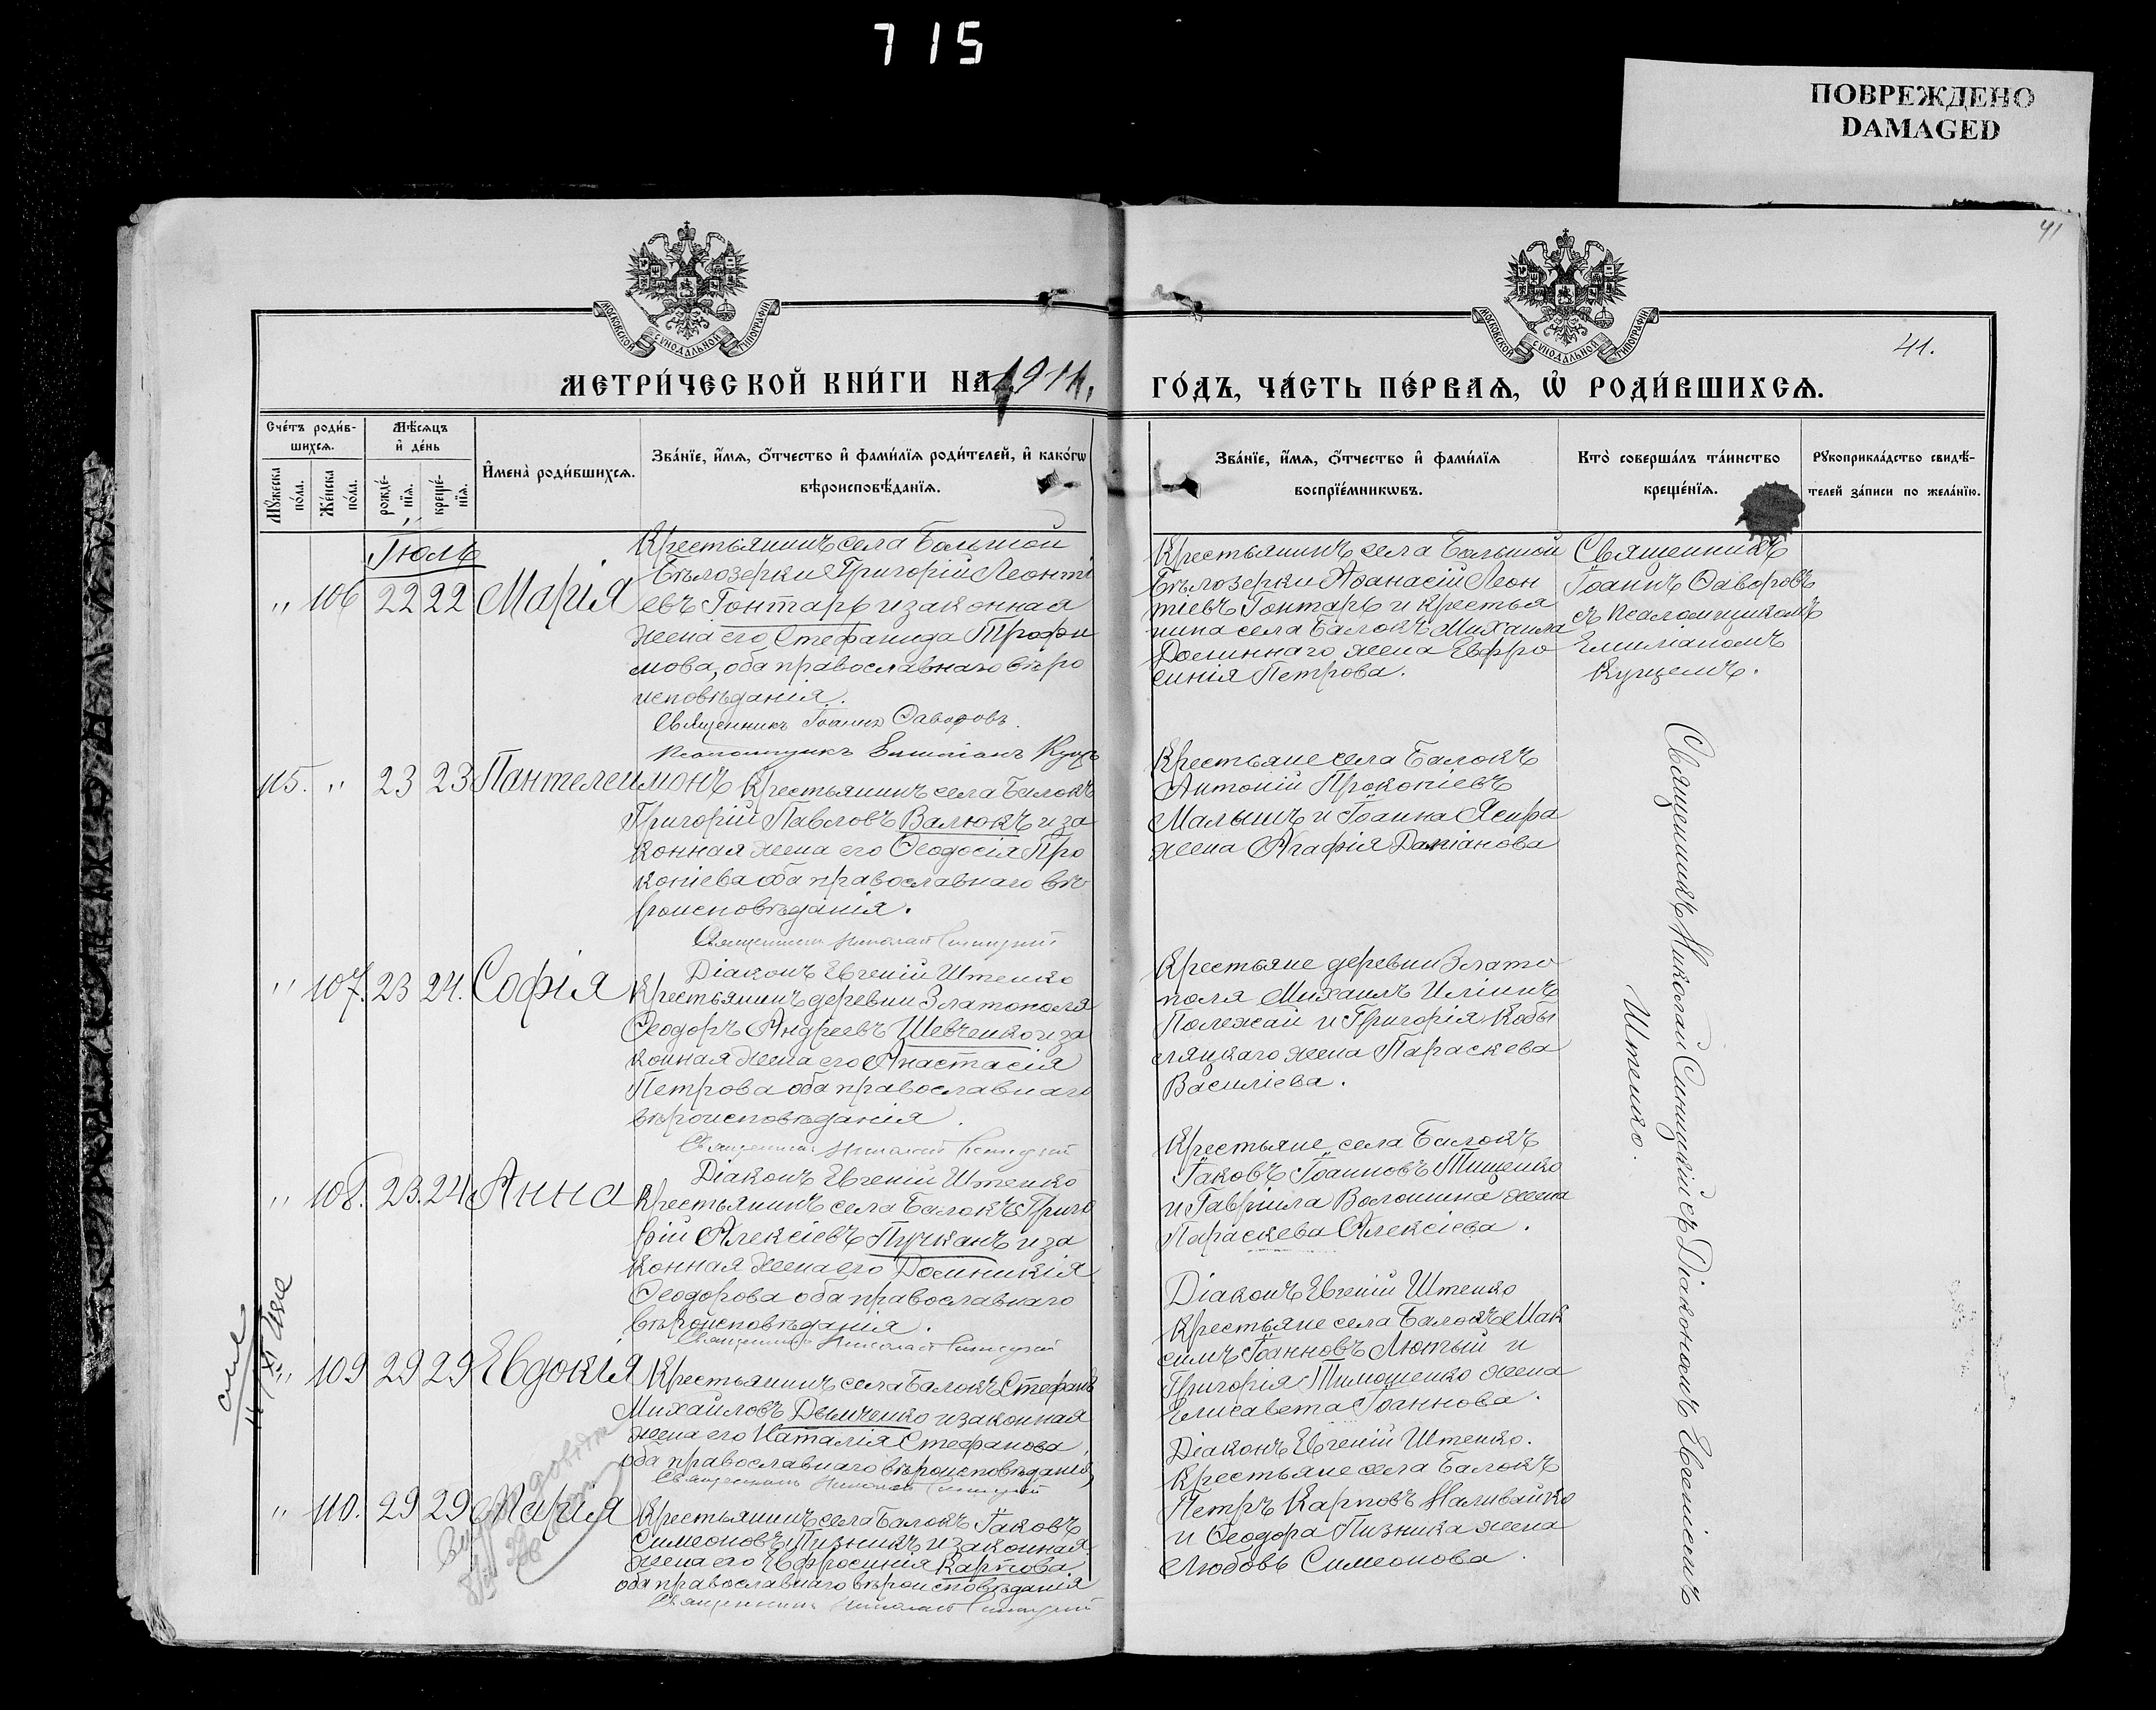 715
ПОВРЕЖДЕНО
DAMAGED
41
МОСКОВСКОЙ СѴНОДАЛЬНОЙ ТИПОГРАФІИ
МОСКОВСКОЙ СѴНОДАЛЬНОЙ ТИПОГРАФІИ
41.
МЕТРИ́ЧЕСКОЙ КНИ́ГИ НА 1911 г.
ГО́ДЪ, ЧА́СТЬ ПЕ́РВАѦ, Ѡ҆ РОДИ́ВШИХСѦ.
Сче́тъ роди́в-
шихсѧ.
Мꙋ́жеска по́ла.
Же́нска по́ла.
Мѣ́сѧцъ
и҆ де́нь
рожде́-
нїѧ.
креще́-
нїѧ.
И҆мена̀ роди́вшихсѧ.
Зва́нїе, и҆́мѧ, ѻ҆́тчество и҆ фами́лїѧ роди́телей, и҆ како́гѡ
вѣроисповѣ́данїѧ.
Зва́нїе, и҆́мѧ, ѻ҆́тчество и҆ фами́лїѧ
воспрїе́мникѡвъ.
Кто̀ соверша́лъ та́инство
креще́нїѧ.
Рꙋкоприкла́дство свидѣ́-
телей за́писи по жела́нїю.
Іюль
„ 106 22 22 Марія
Крестьянинъ села Большой
Бѣлозерки Григорій Леонті
евъ Гонтарь и законная
жена его Стефанида Трофи
мова, оба православнаго вѣро
исповѣданія.
Священникъ Іоаннъ Ѳаворовъ.
Псаломщикъ Емиліанъ Купц
Крестьянинъ села Большой
Бѣлозерки Аѳанасій Леон
тіевъ Гонтарь и крестья
нина села Балокъ Михаила
Долиннаго жена Евфро
синія Петрова.
Священникъ
Іоаннъ Ѳаворовъ
съ псаломщикомъ
Емиліаномъ
Купцемъ.
115. „ 23 23 Пантелеимонъ
Крестьянинъ села Балокъ
Григорій Павловъ Валюкъ и за
конная жена его Ѳеодосія Про
копіева оба православнаго вѣ
роисповѣданія.
Священникъ Николай Синицкій
Діаконъ Евгеній Штенко
Крестьяне села Балокъ
Антоній Прокопіевъ
Малышъ и Іоанна Ясира
жена Агафія Даміанова
„ 107. 23 24. Софія
Крестьянинъ деревни Златополя
Ѳеодоръ Андреевъ Шевченко и за
конная жена его Анастасія
Петрова оба православнаго
вѣроисповѣданія.
Священникъ Николай Синицкій
Діаконъ Евгеній Штенко
Крестьяне деревни Злато
поля Михаилъ Иліинъ
Полежай и Григорія Кобы
ляцкаго жена Параскева
Василіева.
„ 108. 23. 24 Анна
Крестьянинъ села Балокъ Григо
рій Алексіевъ Пучканъ и за
конная жена его Домникія
Ѳеодорова оба православнаго
вѣроисповѣданія.
Священникъ Николай Синицкій
Крестьяне села Балокъ
Іаковъ Іоанновъ Тищенко
и Гавріила Волошина жена
Параскева Алексіева.
Діаконъ Евгеній Штенко
„ 109 29 29 Евдокія
Крестьянинъ села Балокъ Стефанъ
Михайловъ Дымченко и законная
жена его Наталія Стефанова
оба православнаго вѣроисповѣданія
Священникъ Николай Синицкій
Крестьяне села Балокъ Мак
симъ Іоанновъ Лютый и
Григорія Тимошенко жена
Елисавета Іоаннова.
Діаконъ Евгеній Штенко.
„ 110. 29 29 Марія
Крестьянинъ села Балокъ Іаковъ
Симеоновъ Пизникъ и законная
жена его Евфросинія Карпова
оба православнаго вѣроисповѣданія
Священникъ Николай Синицкій
Крестьяне села Балокъ
Петръ Карповъ Наливайко
и Ѳеодора Пизника жена
Любовь Симеонова.
Священникъ Николай Синицкій съ Діакономъ Евгеніемъ
Штенко.